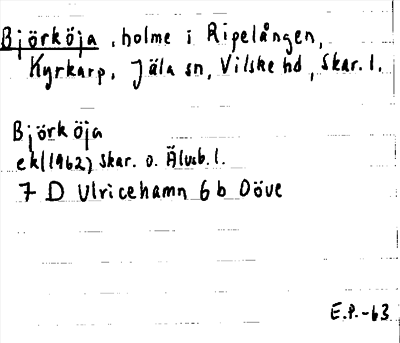 Björköja, holme i Ripelången,
Kyrkarp, Jäla sn, Vilske hd, Skar. l.
Björköja
ek (1962) Skar. o. Älvsb. l.
7 D Ulricehamn 6 b Döve
E.P.-63